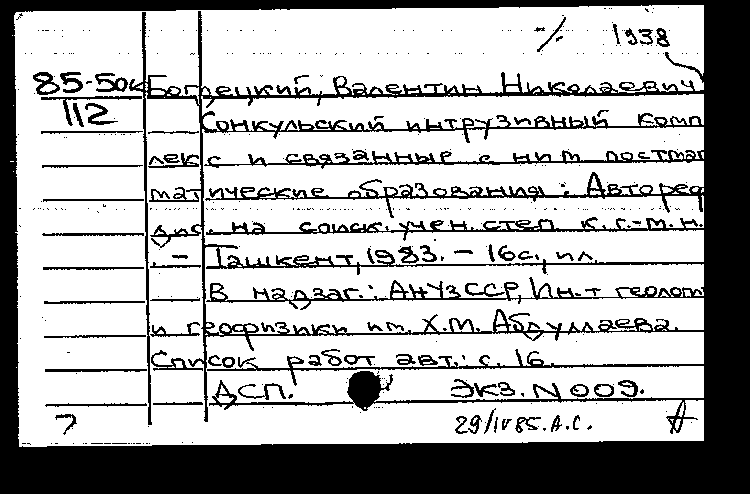 1938
85-50к Богдецкий, Валентин Николаевич
112 Сонкульский интрузивный комп
лекс и связанные с ним постмаг
матические образования: Автореф
дис. на соиск. учен. степ. к. г.-м. н.
. – Ташкент, 1983. – 16с., ил.
В надзаг.: АН УзССР, Ин-т геологии
и геофизики им. Х.М. Абдуллаева.
Список работ авт.: с. 16.
ДСП. ЭКЗ. N 009.
29/IV 85. А.С.